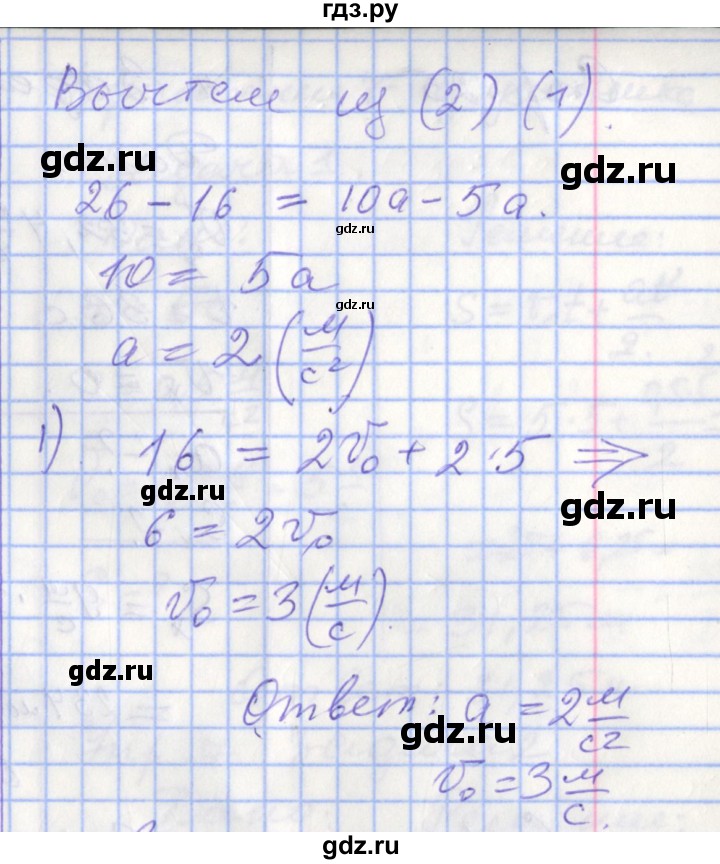 гдз.ру
Вычтем из (2) (1).
gdz.ru
gdz.ru
26 - 16 = 10a - 5a.
gdz.ru
10 = 5a
gdz.ru
a = 2 (м/с²)
1) 16 = 2v₀ + 2·5 ⇒
gdz.ru
gdz.ru
6 = 2v₀
v₀ = 3 (м/с).
gdz.ru
Ответ: a = 2 м/с²
gdz.ru
v₀ = 3 м/с.
gdz.ru